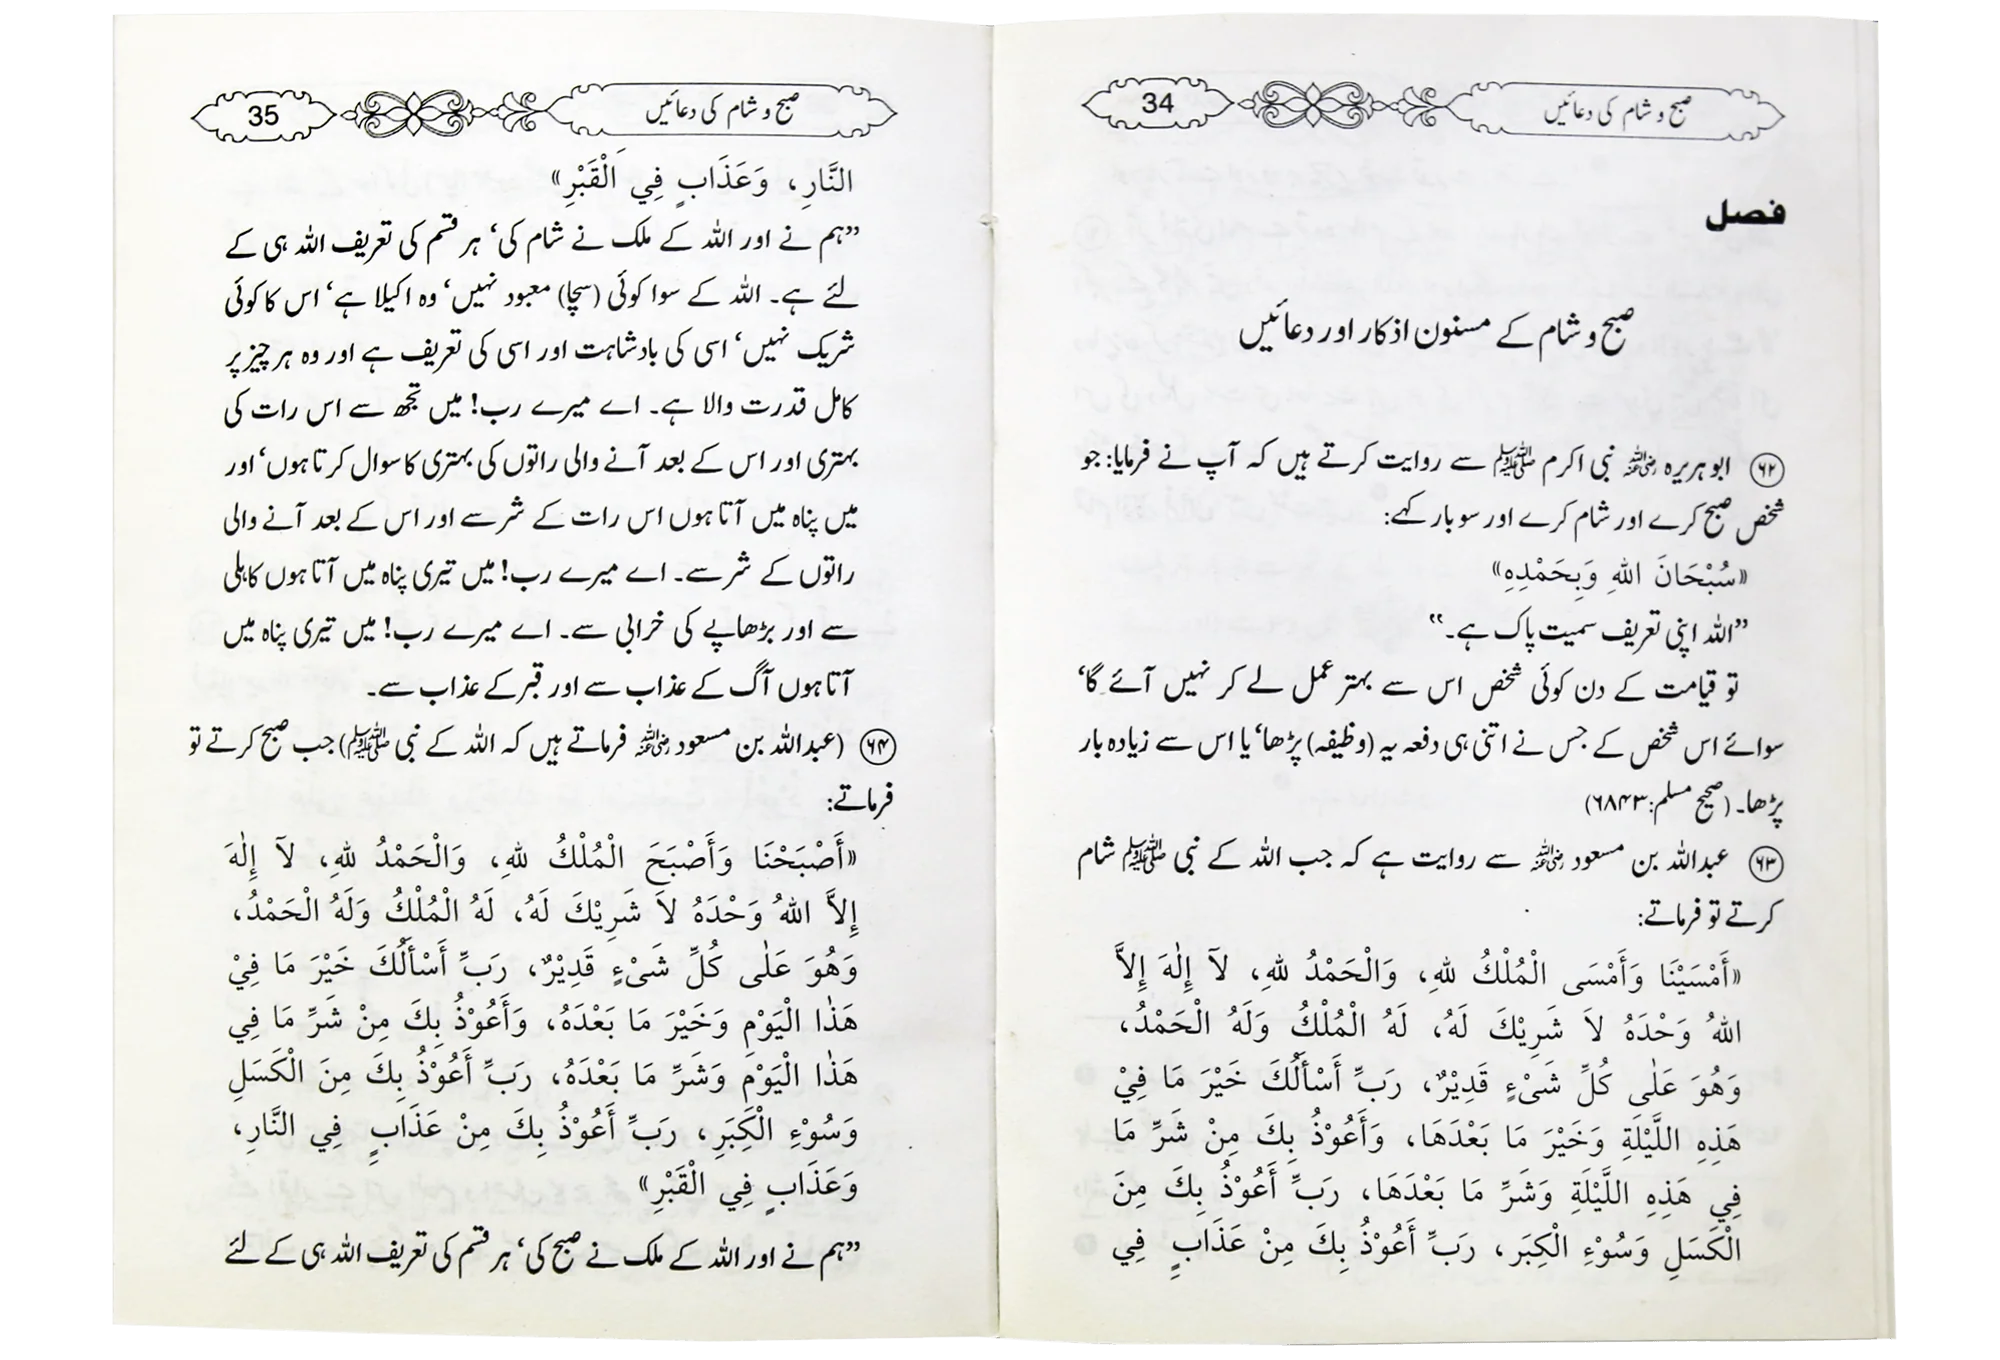 صبح و شام کی دعائیں 34
فصل
صبح و شام کے مسنون اذکار اور دعائیں
۶۲ ابو ہریرہ رضی اللہ عنہ نبی اکرم ﷺ سے روایت کرتے ہیں کہ آپ نے فرمایا: جو
شخص صبح کرے اور شام کرے اور سو بار کہے:
«سُبْحَانَ اللهِ وَبِحَمْدِهِ»
”اللہ اپنی تعریف سمیت پاک ہے۔“
تو قیامت کے دن کوئی شخص اس سے بہتر عمل لے کر نہیں آئے گا‘
سوائے اس شخص کے جس نے اتنی ہی دفعہ یہ (وظیفہ) پڑھا‘ یا اس سے زیادہ بار
پڑھا۔ (صحیح مسلم: ۶۸۴۳)
۶۳ عبداللہ بن مسعود رضی اللہ عنہ سے روایت ہے کہ جب اللہ کے نبی ﷺ شام
کرتے تو فرماتے:
«أَمْسَيْنَا وَأَمْسَى الْمُلْكُ لِلهِ، وَالْحَمْدُ لِلهِ، لَآ إِلٰهَ إِلاَّ
اللهُ وَحْدَهُ لاَ شَرِيْكَ لَهُ، لَهُ الْمُلْكُ وَلَهُ الْحَمْدُ،
وَهُوَ عَلٰى كُلِّ شَىْءٍ قَدِيْرٌ، رَبِّ أَسْأَلُكَ خَيْرَ مَا فِيْ
هَذِهِ اللَّيْلَةِ وَخَيْرَ مَا بَعْدَهَا، وَأَعُوْذُ بِكَ مِنْ شَرِّ مَا
فِي هَذِهِ اللَّيْلَةِ وَشَرِّ مَا بَعْدَهَا، رَبِّ أَعُوْذُ بِكَ مِنَ
الْكَسَلِ وَسُوْءِ الْكِبَرِ، رَبِّ أَعُوْذُ بِكَ مِنْ عَذَابٍ فِي
صبح و شام کی دعائیں 35
النَّارِ، وَعَذَابٍ فِي الْقَبْرِ»
”ہم نے اور اللہ کے ملک نے شام کی‘ ہر قسم کی تعریف اللہ ہی کے
لئے ہے۔ اللہ کے سوا کوئی (سچا) معبود نہیں‘ وہ اکیلا ہے‘ اس کا کوئی
شریک نہیں‘ اسی کی بادشاہت اور اسی کی تعریف ہے اور وہ ہر چیز پر
کامل قدرت والا ہے۔ اے میرے رب! میں تجھ سے اس رات کی
بہتری اور اس کے بعد آنے والی راتوں کی بہتری کا سوال کرتا ہوں‘ اور
میں پناہ میں آتا ہوں اس رات کے شر سے اور اس کے بعد آنے والی
راتوں کے شر سے۔ اے میرے رب! میں تیری پناہ میں آتا ہوں کاہلی
سے اور بڑھاپے کی خرابی سے۔ اے میرے رب! میں تیری پناہ میں
آتا ہوں آگ کے عذاب سے اور قبر کے عذاب سے۔
۶۴ (عبداللہ بن مسعود رضی اللہ عنہ فرماتے ہیں کہ اللہ کے نبی ﷺ) جب صبح کرتے تو
فرماتے:
«أَصْبَحْنَا وَأَصْبَحَ الْمُلْكُ لِلهِ، وَالْحَمْدُ لِلهِ، لَآ إِلٰهَ
إِلاَّ اللهُ وَحْدَهُ لاَ شَرِيْكَ لَهُ، لَهُ الْمُلْكُ وَلَهُ الْحَمْدُ،
وَهُوَ عَلٰى كُلِّ شَىْءٍ قَدِيْرٌ، رَبِّ أَسْأَلُكَ خَيْرَ مَا فِيْ
هَذٰا الْيَوْمِ وَخَيْرَ مَا بَعْدَهُ، وَأَعُوْذُ بِكَ مِنْ شَرِّ مَا فِي
هَذٰا الْيَوْمِ وَشَرِّ مَا بَعْدَهُ، رَبِّ أَعُوْذُ بِكَ مِنَ الْكَسَلِ
وَسُوْءِ الْكِبَرِ، رَبِّ أَعُوْذُ بِكَ مِنْ عَذَابٍ فِي النَّارِ،
وَعَذَابٍ فِي الْقَبْرِ»
”ہم نے اور اللہ کے ملک نے صبح کی‘ ہر قسم کی تعریف اللہ ہی کے لئے